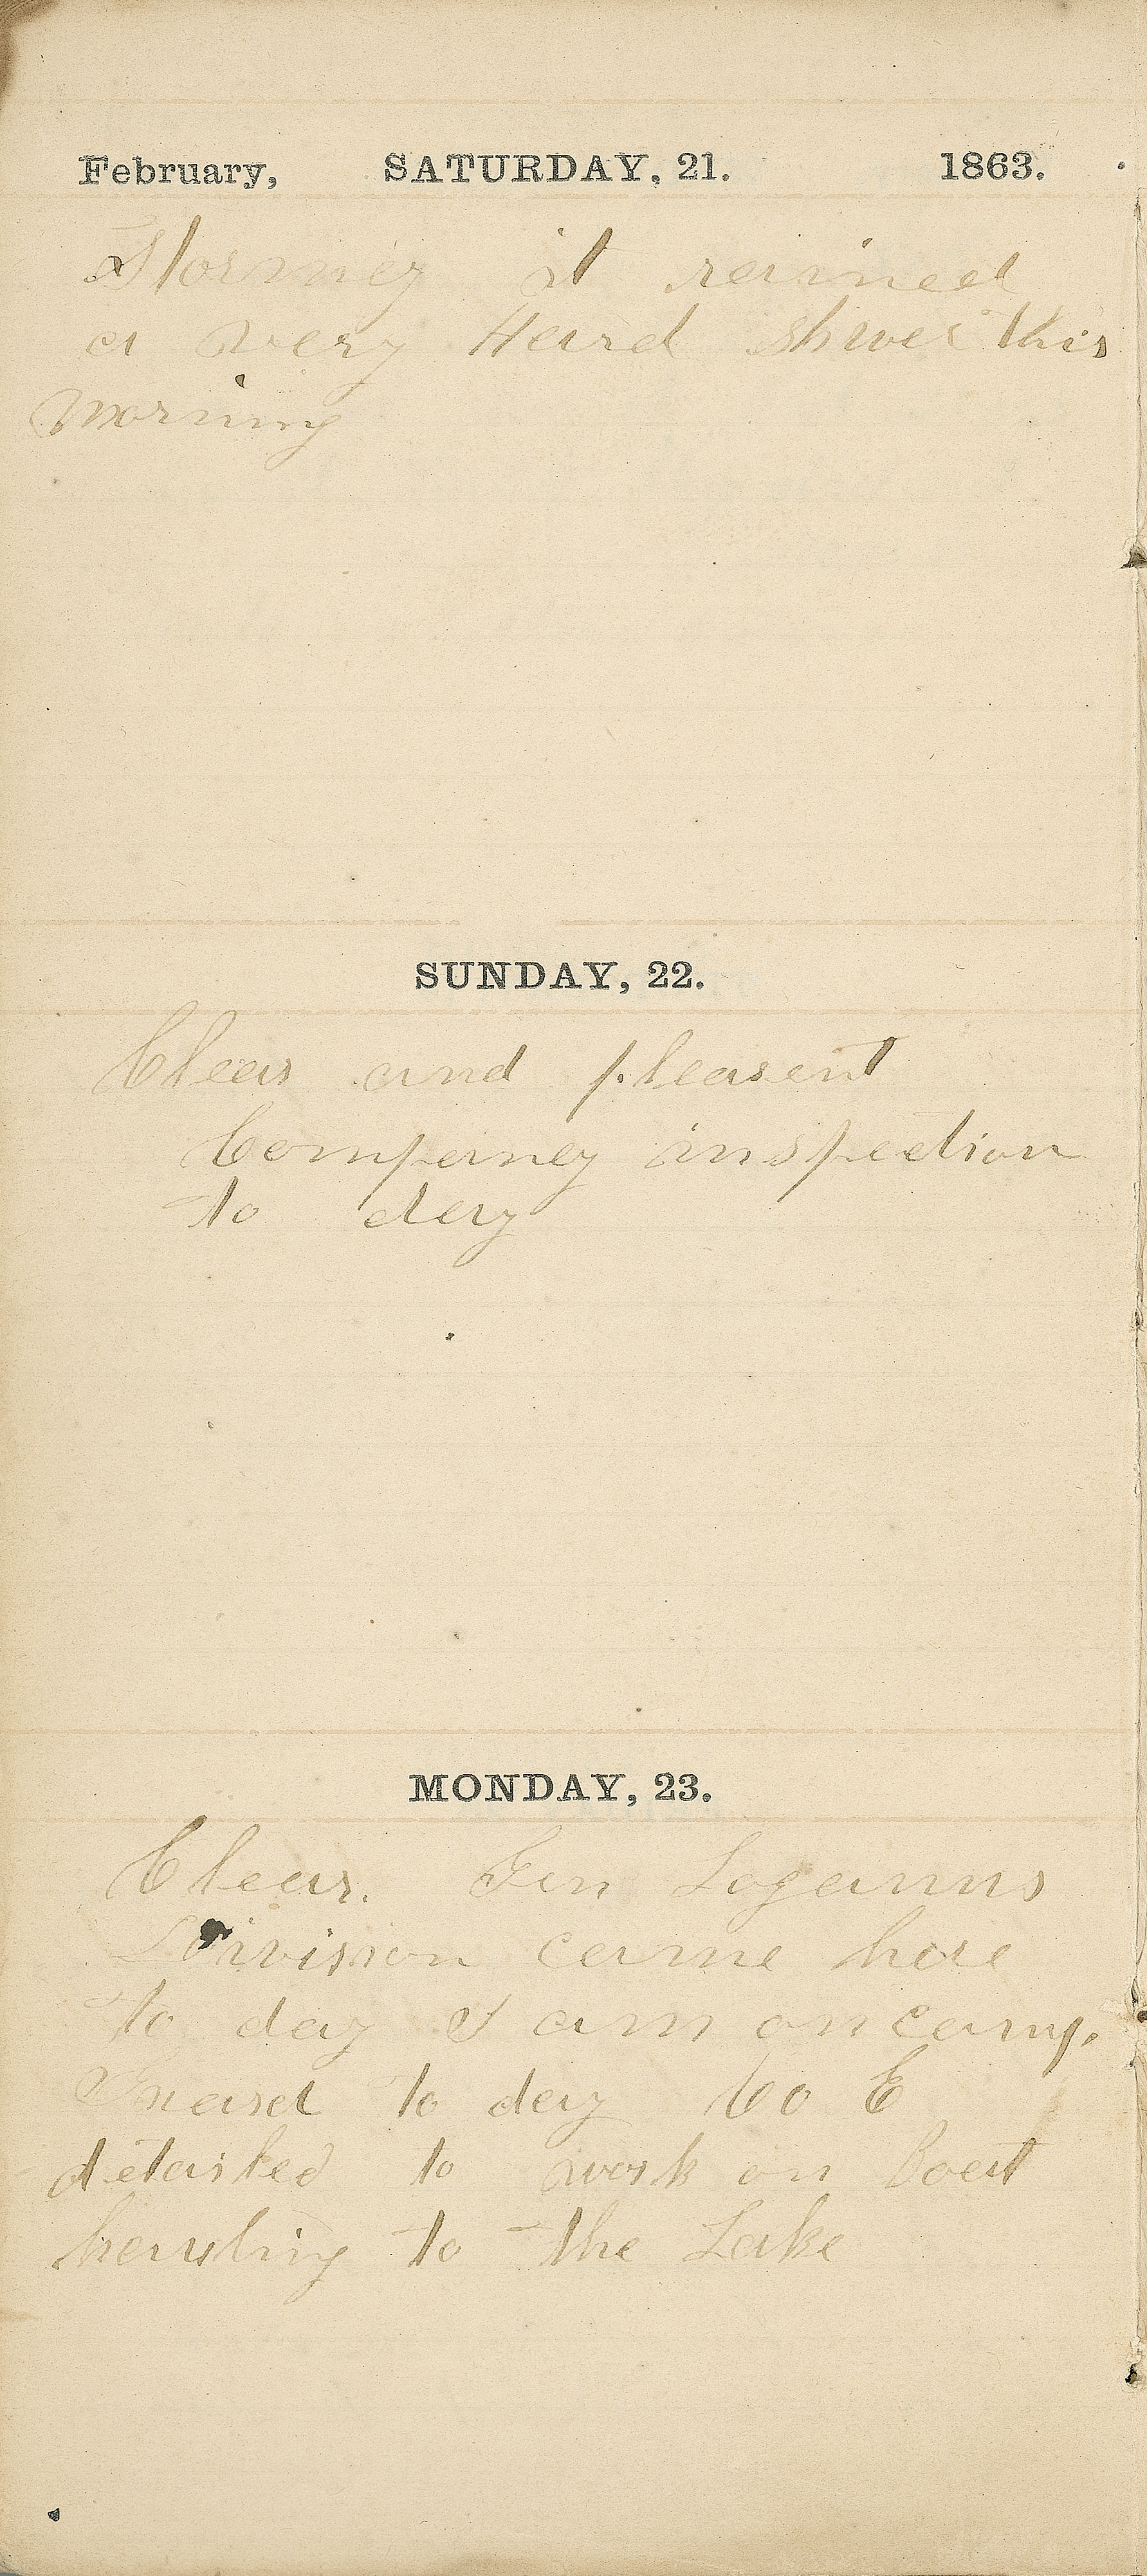 February, SATURDAY, 21. 1863.
Stormey it rained
a very Hard shwer this
morning
SUNDAY, 22.
Clear and pleasent
Companey inspection
to day
MONDAY, 23.
Clear. Gen Loganns
Division came here
to day I am on camp.
Guard to day Co E
detailed to work on Boat
hauling to the Lake